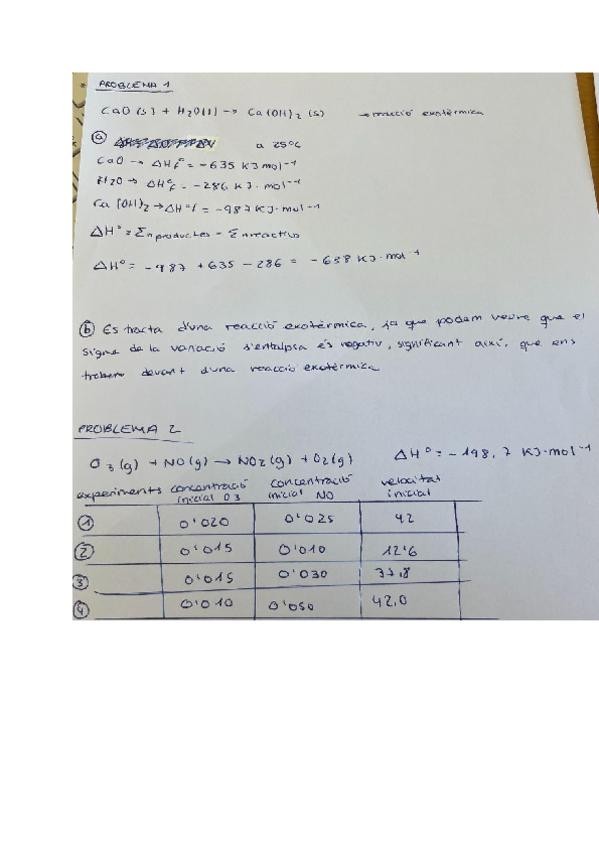 PROBLEMA 1
CaO (s) + H2O(l) → Ca(OH)2 (s) → reacció exotèrmica
ⓐ a 25ºC
CaO → ΔHfº = -635 KJ mol⁻¹
H2O → ΔHºf = -286 KJ · mol⁻¹
Ca (OH)2 → ΔHºf = -987 KJ · mol⁻¹
ΔHº = Σn productes - Σn reactius
ΔHº = -987 + 635 - 286 = -638 KJ · mol⁻¹
ⓑ Es tracta d'una reacció exotèrmica, ja que podem veure que el
signe de la variació d'entalpia és negatiu, significant així, que ens
trobem devant d'una reacció exotèrmica
PROBLEMA 2
O3(g) + NO(g) → NO2(g) + O2(g) ΔHº = -198,7 KJ·mol⁻¹
experiments concentració inicial O3 concentració inicial NO velocitat inicial
① 0'020 0'025 42
② 0'015 0'010 12'6
③ 0'015 0'030 37,8
④ 0'010 0'050 42,0